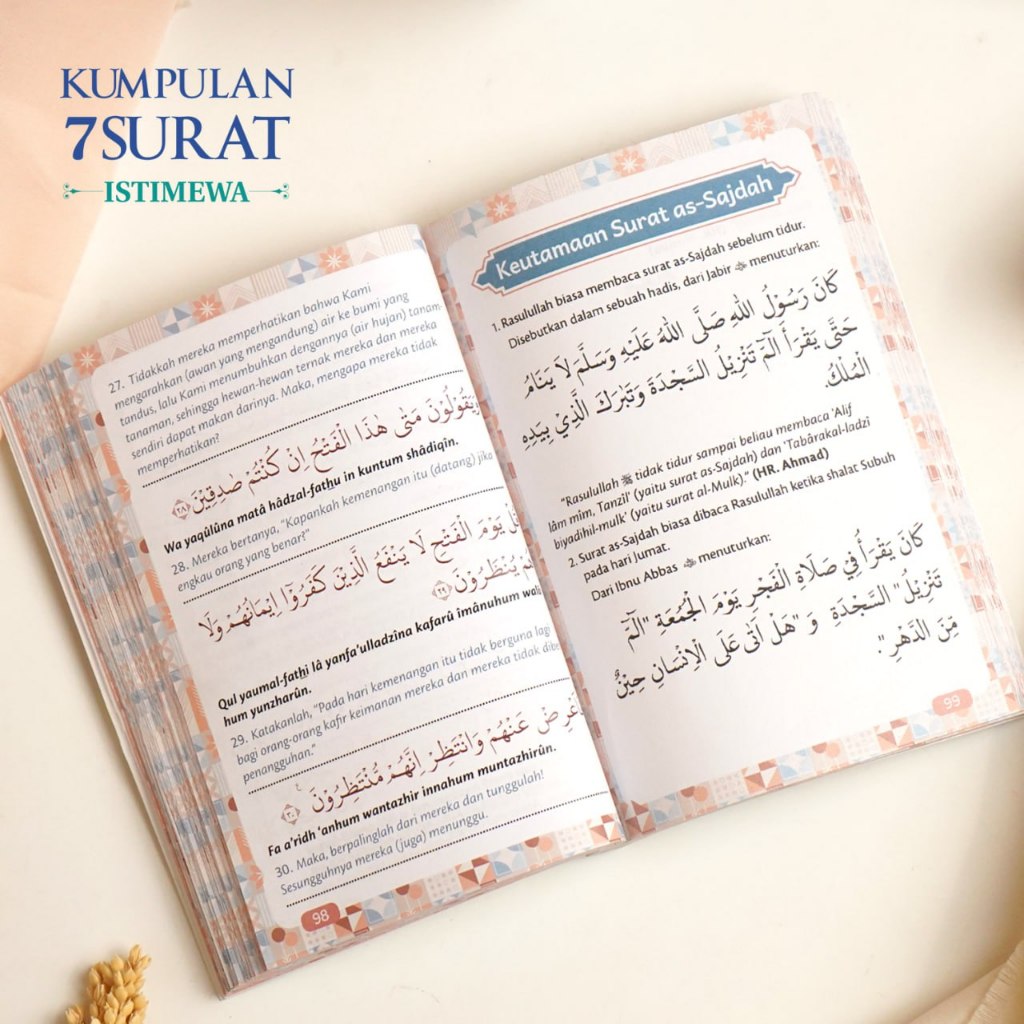 KUMPULAN
7SURAT
ISTIMEWA
27. Tidakkah mereka memperhatikan bahwa Kami
mengarahkan (awan yang mengandung) air ke bumi yang
tandus, lalu Kami menumbuhkan dengannya (air hujan) tanam
tanaman, sehingga hewan-hewan ternak mereka dan mereka
sendiri dapat makan darinya. Maka, mengapa mereka tidak
memperhatikan?
وَيَقُوْلُوْنَ مَتٰى هٰذَا الْفَتْحُ اِنْ كُنْتُمْ صٰدِقِيْنَ ﴿٢٨﴾
Wa yaqûlûna matâ hâdzal-fathu in kuntum shâdiqîn.
28. Mereka bertanya, “Kapankah kemenangan itu (datang) jika
engkau orang yang benar?”
قُلْ يَوْمَ الْفَتْحِ لَا يَنْفَعُ الَّذِيْنَ كَفَرُوْٓا اِيْمَانُهُمْ وَلَا
هُمْ يُنْظَرُوْنَ ﴿٢٩﴾
Qul yaumal-fathi lâ yanfa‘ulladzîna kafarû îmânuhum walâ
hum yunzharûn.
29. Katakanlah, “Pada hari kemenangan itu tidak berguna lagi
bagi orang-orang kafir keimanan mereka dan mereka tidak dibe
penangguhan.”
فَاَعْرِضْ عَنْهُمْ وَانْتَظِرْ اِنَّهُمْ مُّنْتَظِرُوْنَ ﴿٣٠﴾
Fa a‘ridh ‘anhum wantazhir innahum muntazhirûn.
30. Maka, berpalinglah dari mereka dan tunggulah!
Sesungguhnya mereka (juga) menunggu.
98
Keutamaan Surat as-Sajdah
1. Rasulullah biasa membaca surat as-Sajdah sebelum tidur.
Disebutkan dalam sebuah hadis, dari Jabir menuturkan:
كَانَ رَسُوْلُ اللهِ صَلَّى اللهُ عَلَيْهِ وَسَلَّمَ لَا يَنَامُ
حَتَّى يَقْرَأَ الٓمّٓ تَنْزِيْلُ السَّجْدَةَ وَتَبٰرَكَ الَّذِيْ بِيَدِهِ
الْمُلْكُ
“Rasulullah ﷺ tidak tidur sampai beliau membaca ‘Alif
lâm mîm, Tanzîl’ (yaitu surat as-Sajdah) dan ‘Tabârakal-ladzî
biyadihil-mulk’ (yaitu surat al-Mulk).” (HR. Ahmad)
2. Surat as-Sajdah biasa dibaca Rasulullah ketika shalat Subuh
pada hari Jumat.
Dari Ibnu Abbas menuturkan:
كَانَ يَقْرَأُ فِي صَلَاةِ الْفَجْرِ يَوْمَ الْجُمُعَةِ "الٓمّٓ
تَنْزِيْلُ" السَّجْدَةِ وَ "هَلْ اَتٰى عَلَى الْاِنْسَانِ حِيْنٌ
مِنَ الدَّهْرِ".
99